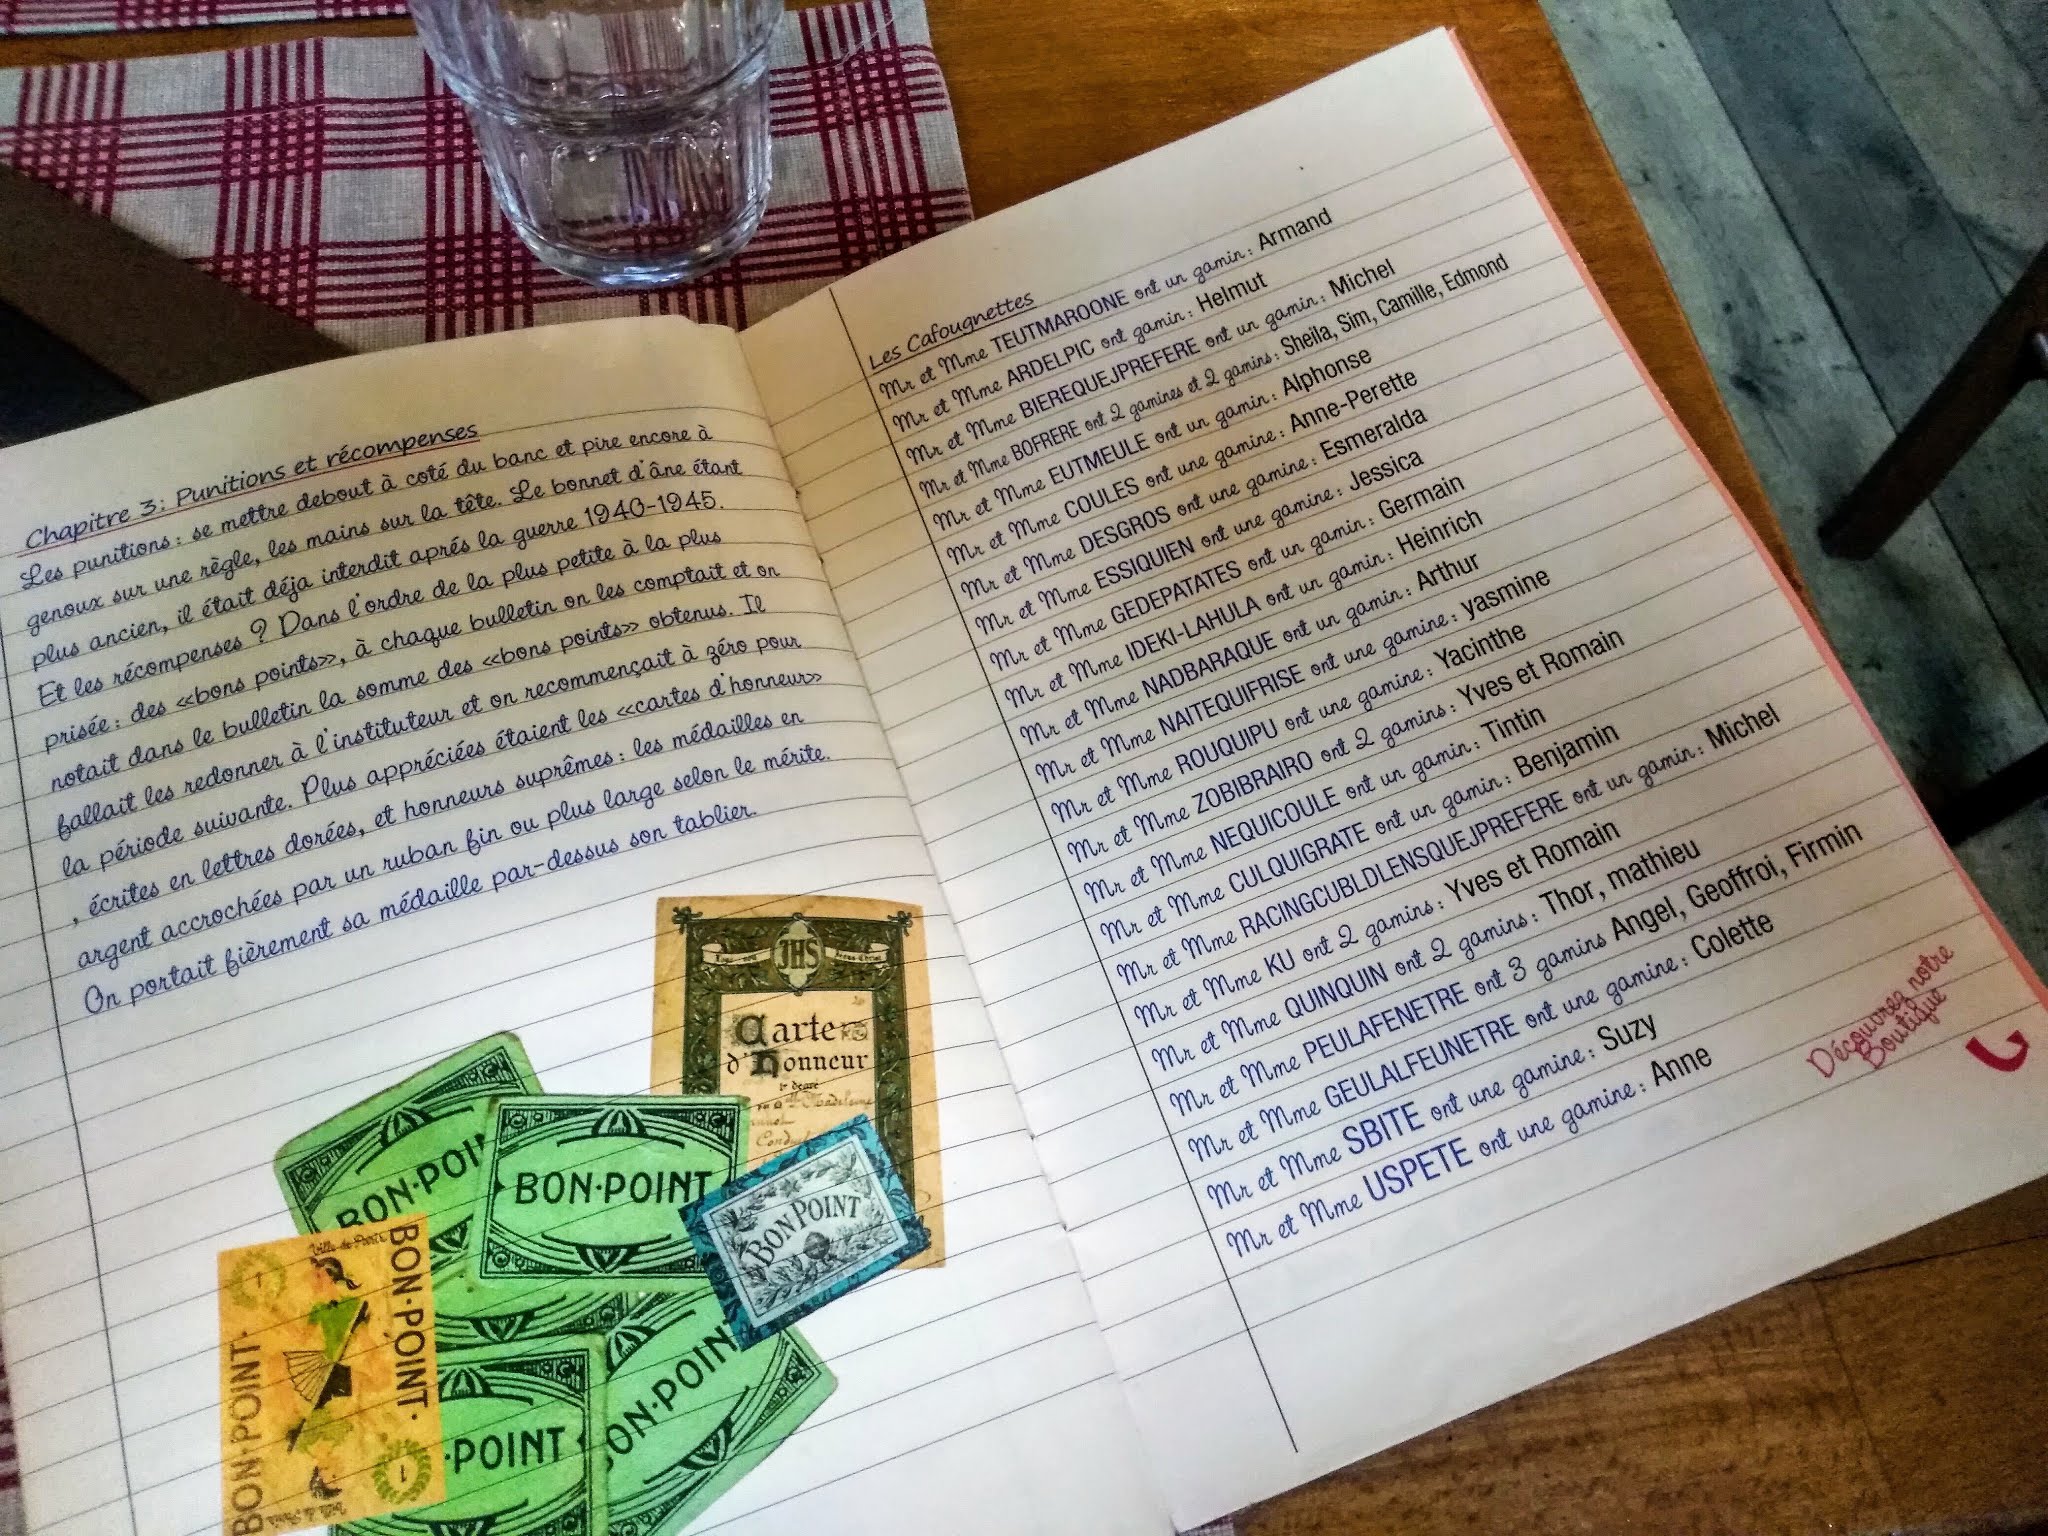 Chapitre 3: Punitions et récompenses
Les punitions : se mettre debout à coté du banc et pire encore à
genoux sur une règle, les mains sur la tête. Le bonnet d'âne étant
plus ancien, il était déja interdit aprés la guerre 1940-1945.
Et les récompenses ? Dans l'ordre de la plus petite à la plus
prisée : des «bons points», à chaque bulletin on les comptait et on
notait dans le bulletin la somme des «bons points» obtenus. Il
fallait les redonner à l'instituteur et on recommençait à zéro pour
la période suivante. Plus appréciées étaient les «cartes d'honneur»
, écrites en lettres dorées, et honneurs suprêmes : les médailles en
argent accrochées par un ruban fin ou plus large selon le mérite.
On portait fièrement sa médaille par-dessus son tablier.
JHS
Carte
d'Honneur
1er degré
BON-POINT
BON-POINT
BON POINT
BON-POINT
BON-POINT
-POINT
BON-POINT
Les Cafougnettes
Mr et Mme TEUTMAROONE ont un gamin : Armand
Mr et Mme ARDELPIC ont gamin : Helmut
Mr et Mme BIEREQUEJPREFERE ont un gamin : Michel
Mr et Mme BOFRERE ont 2 gamines et 2 gamins : Sheila, Sim, Camille, Edmond
Mr et Mme EUTMEULE ont un gamin : Alphonse
Mr et Mme COULES ont une gamine : Anne-Perette
Mr et Mme DESGROS ont une gamine : Esmeralda
Mr et Mme ESSIQUIEN ont une gamine : Jessica
Mr et Mme GEDEPATATES ont un gamin : Germain
Mr et Mme IDEKI-LAHULA ont un gamin : Heinrich
Mr et Mme NADBARAQUE ont un gamin : Arthur
Mr et Mme NAITEQUIFRISE ont une gamine : yasmine
Mr et Mme ROUQUIPU ont une gamine : Yacinthe
Mr et Mme ZOBIBRAIRO ont 2 gamins : Yves et Romain
Mr et Mme NEQUICOULE ont un gamin : Tintin
Mr et Mme CULQUIGRATE ont un gamin : Benjamin
Mr et Mme RACINGCUBLDLENSQUEJPREFERE ont un gamin : Michel
Mr et Mme KU ont 2 gamins : Yves et Romain
Mr et Mme QUINQUIN ont 2 gamins : Thor, mathieu
Mr et Mme PEULAFENETRE ont 3 gamins Angel, Geoffroi, Firmin
Mr et Mme GEULALFEUNETRE ont une gamine : Colette
Mr et Mme SBITE ont une gamine : Suzy
Mr et Mme USPETE ont une gamine : Anne
Découvrez notre
Boutifut